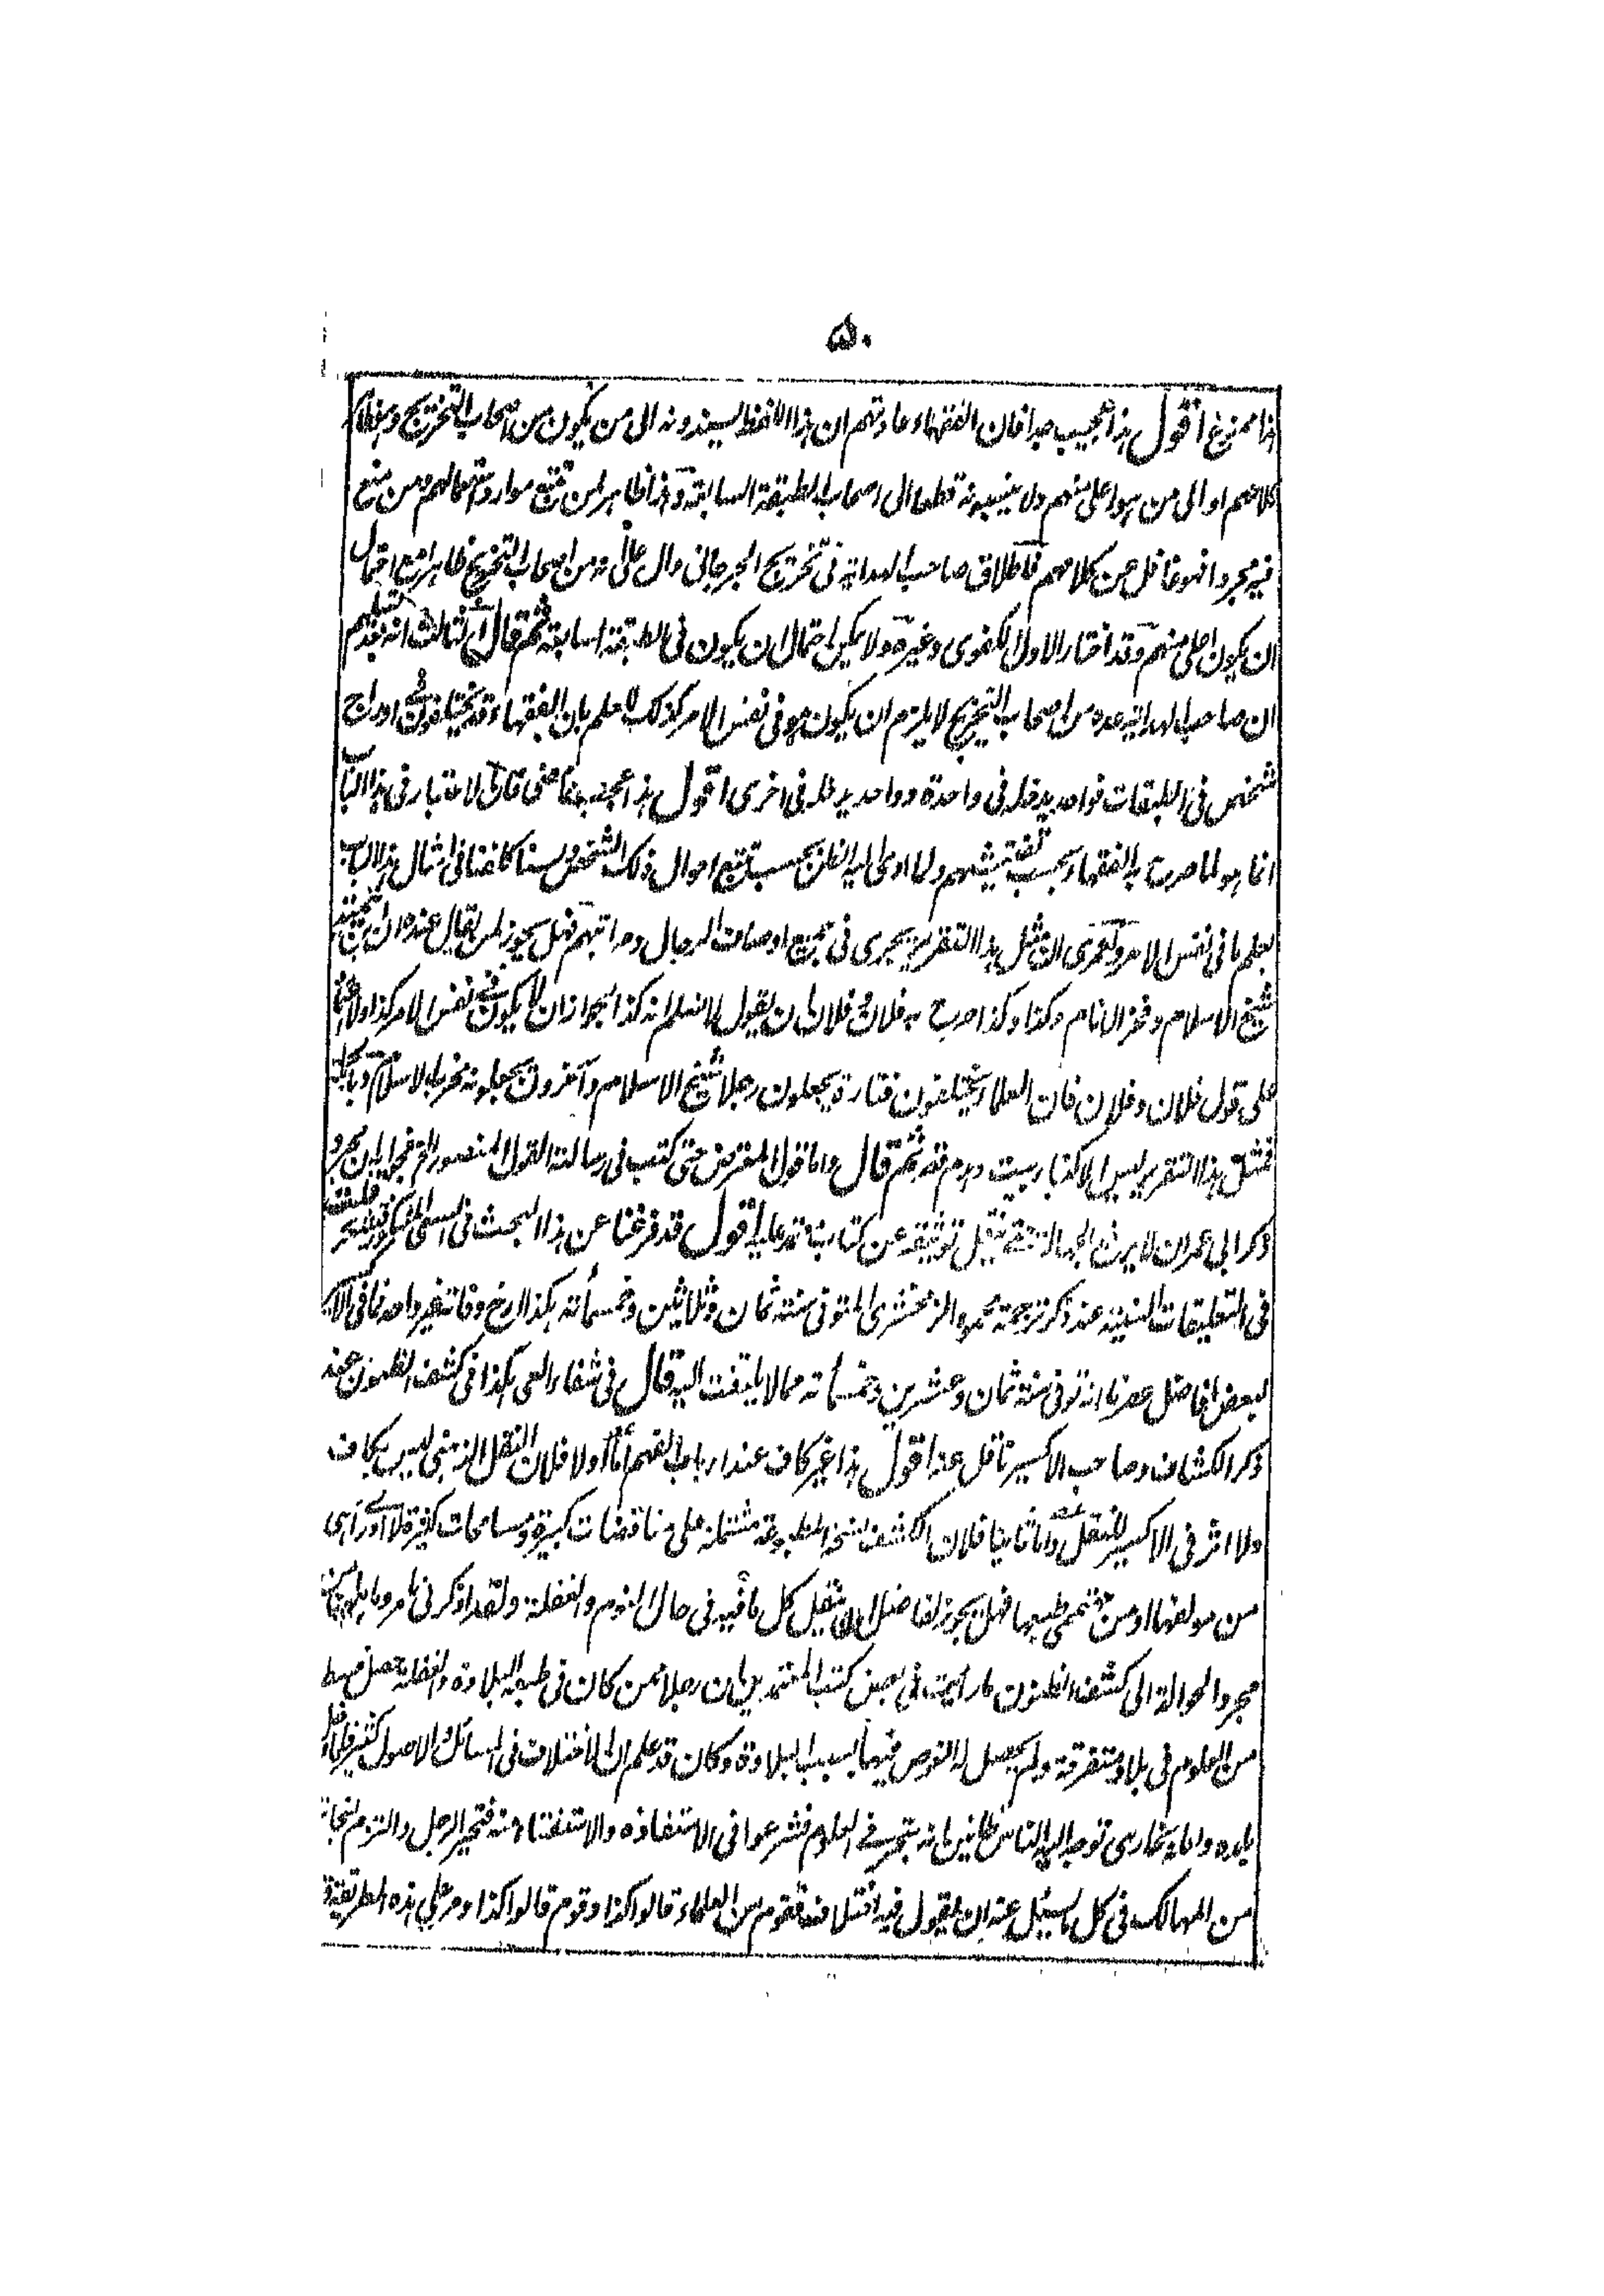 ۵۰
هذا ممنوع اقول هذا عجيب جدا فان الفقهاء عادتهم ان هذا اللفظ يسندونه الى من يكون من اصحاب التخريج
كلامهم او الى من هو اعلى منهم ولا ينسبونه قطعا الى اصحاب الطبقة السابقة وهذا ظاهر لمن تتبع موارد استعمالهم ومن منع
فيه مجردا فهو غافل عن كلامهم فاطلاق صاحب الهداية فى تخريج الجرجانى دال على انه من اصحاب التخريج ظاهرا مع احتمال
ان يكون اعلى منهم وقد اختار الاول الكفوى وغيره ولا يمكن احتمال ان يكون فى الطبقة السابقة ثم قال الثالث انه بعد تسليم
ان صاحب الهداية عده من اصحاب التخريج لا يلزم ان يكون هو فى نفس الامر كذلك لا علم بان الفقهاء قد يختلفون فى ادراج
شخص فى الطبقات فواحد يدخله فى واحدة وواحد يدخله فى اخرى اقول هذا عجيب فان الاعتبار فى هذا الباب
انما هو لما صرح به الفقهاء بحسب تفتيشهم ولما ادى اليه الظن بحسب تتبع احوال ذلك الشخص ولسنا كلفنا فى امثال هذا الباب
بعلم ما فى نفس الامر ولعمرى ان مثل هذا التقرير يجرى فى جميع اوصاف الرجال ومراتبهم فهل يجوز لمن يقال عنده ان ابن تيمية
شيخ الاسلام وفخر الانام وكذا وكذا صرح به فلان وفلان ان يقول لا نسلم انه كذا لجواز ان لا يكون فى نفس الامر كذا ولا
على قول فلان وفلان فان العلماء يختلفون فتارة يجعلون رجلا شيخ الاسلام وآخرون يجعلونه مخرب الاسلام وبالجملة
فمثل هذا التقرير ليس الا كنار بيت ثم قال واما قول المعترض حتى كتب فى رسالته القول المنصور
ذكر ابى عمران لا يرفع الجهالة حتى ينقل توثيقه عن كتاب اقول قد فرغنا عن هذا البحث فى السعى المشكور
فى التعليقات السنية عند ذكر ترجمة محمود الزمخشرى المتوفى سنة ثمان وثلاثين وخمسمائة هكذا ارخ وفاته غير واحد فما فى
لبعض افاضل عصرنا انه توفى سنة ثمان وعشرين وخمسمائة مما لا يلتفت اليه قال فى شفاء العى هكذا فى كشف الظنون عند
ذكر الكشاف وصاحب الاكسير ناقل عنه اقول هذا غير كاف عند ارباب الفهم اما اولا فلان النقل الذهنى ليس بكاف
ولا اثر فى الاكسير للنقل واما ثانيا فلان الكشف نسخه المطبوعة مشتملة على مناقضات كبيرة ومسامحات كثيرة لا ادرى اهى
من مولفها او من مهتممى طبعها فهل يجوز لفاضل ان ينقل كل ما فيه فى حال النوم والغفلة ولقد اذكرنى
مجرد الحوالة الى كشف الظنون ما رأيت فى بعض كتب المعتمدين ان رجلا ممن كان فى طبعه البلادة والغفلة حصل
من العلوم فى بلاد متفرقة ولم يحصل له الغوص فيها بسبب البلادة وكان قد علم ان الاختلاف فى المسائل والاصول كثير فلما دخل
بلده توجه اليه الناس ظانين بانه متبحر فى العلوم فشرعوا فى الاستفادة والاستفتاء منه فتحير الرجل والتزم
من المهالك فى كل ما يسئل عنه ان يقول فيه اختلاف فقوم من العلماء قالوا كذا وقوم قالوا كذا ومر على هذه الطريقة